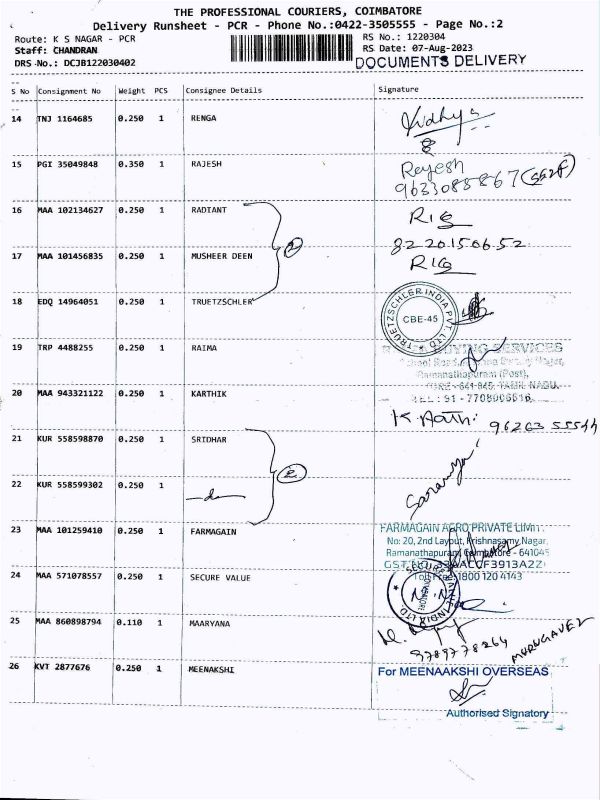 THE PROFESSIONAL COURIERS, COIMBATORE
Delivery Runsheet - PCR - Phone No.:0422-3505555 - Page No.:2
Route: K S NAGAR - PCR RS No.: 1220304
Staff: CHANDRAN RS Date: 07-Aug-2023
DRS No.: DCJB122030402 DOCUMENTS DELIVERY
S No Consignment No Weight PCS Consignee Details Signature
14 TNJ 1164685 0.250 1 RENGA
15 PGI 35049848 0.350 1 RAJESH Rajesh
9633088867
16 MAA 102134627 0.250 1 RADIANT
8220150652
17 MAA 101456835 0.250 1 MUSHEER DEEN
18 EDQ 14964051 0.250 1 TRUETZSCHLER TRUETZSCHLER INDIA PVT. LTD. CBE-45
19 TRP 4488255 0.250 1 RAIMA BUYING SERVICES
Ramanathapuram (Post),
641 045, TAMIL NADU.
20 MAA 943321122 0.250 1 KARTHIK TEL : 91 - 7708006616
21 KUR 558598870 0.250 1 SRIDHAR
22 KUR 558599302 0.250 1 Saranya
23 MAA 101259410 0.250 1 FARMAGAIN FARMAGAIN AGRO PRIVATE LIMIT
No: 20, 2nd Layout, Krishnasamy Nagar,
Ramanathapuram Coimbatore - 641045
Toll Free: 1800 120 4143
24 MAA 571078557 0.250 1 SECURE VALUE SECURE VALUE INDIA LTD.
25 MAA 860898794 0.110 1 MAARYANA
9789778264 MURUGAVEL
26 KVT 2877676 0.250 1 MEENAKSHI For MEENAAKSHI OVERSEAS
Authorised Signatory